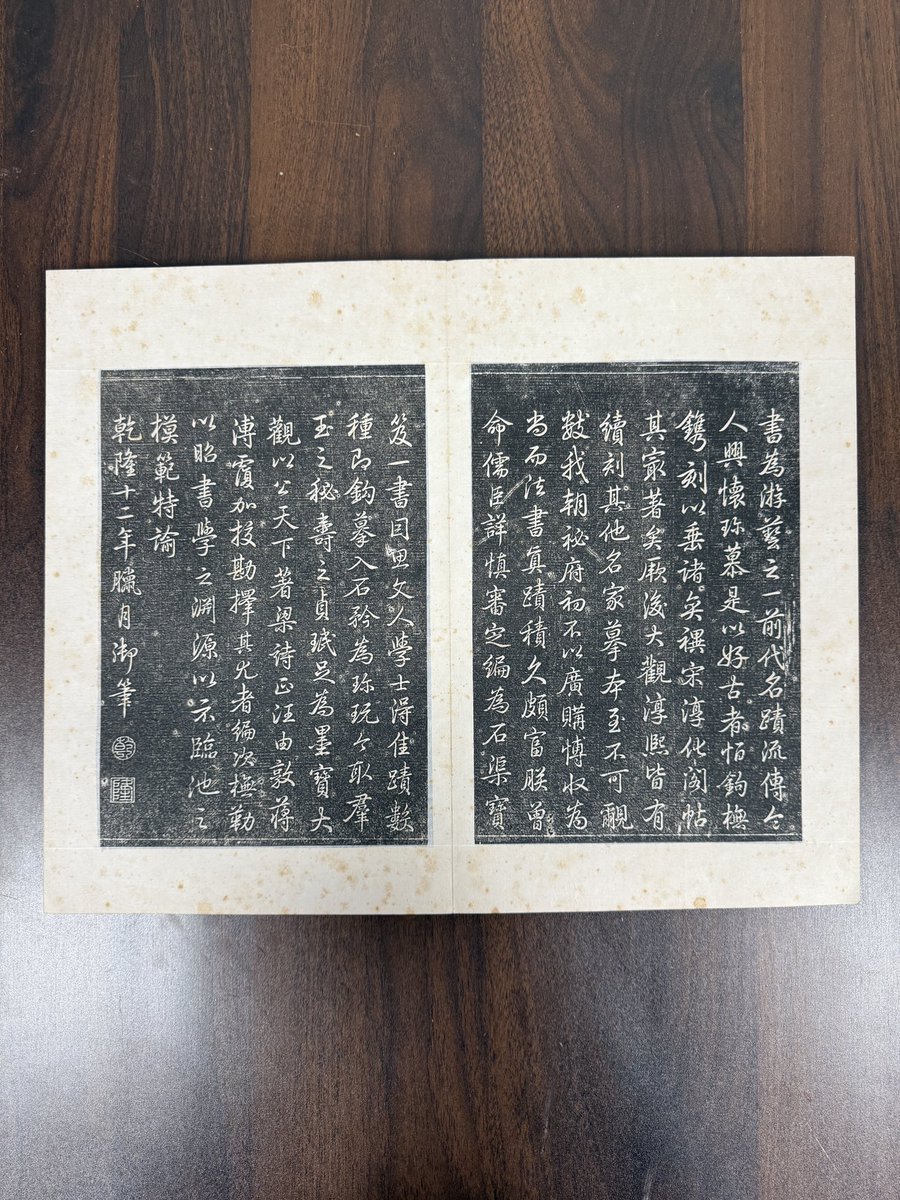 書為游藝之一前代名蹟流傳令
人興懷珍慕是以好古者恒鉤橅
鐫刻以垂諸奕禩宋淳化閣帖
其最著矣厥後大觀淳熙皆有
續刻其他名家摹本至不可覼
數我朝秘府初不以廣購博收為
尚而法書真蹟積久頗富朕曾
命儒臣詳慎審定編為石渠寶
笈一書因思文人學士得佳蹟數
種即鉤摹入石矜為珍玩今取羣
玉之秘壽之貞珉足為墨寶大
觀以公天下著梁詩正汪由敦蔣
溥覈加校勘擇其尤者編次橅勒
以昭書學之淵源以示臨池之
模範特諭
乾隆十二年臘月御筆
乾
隆